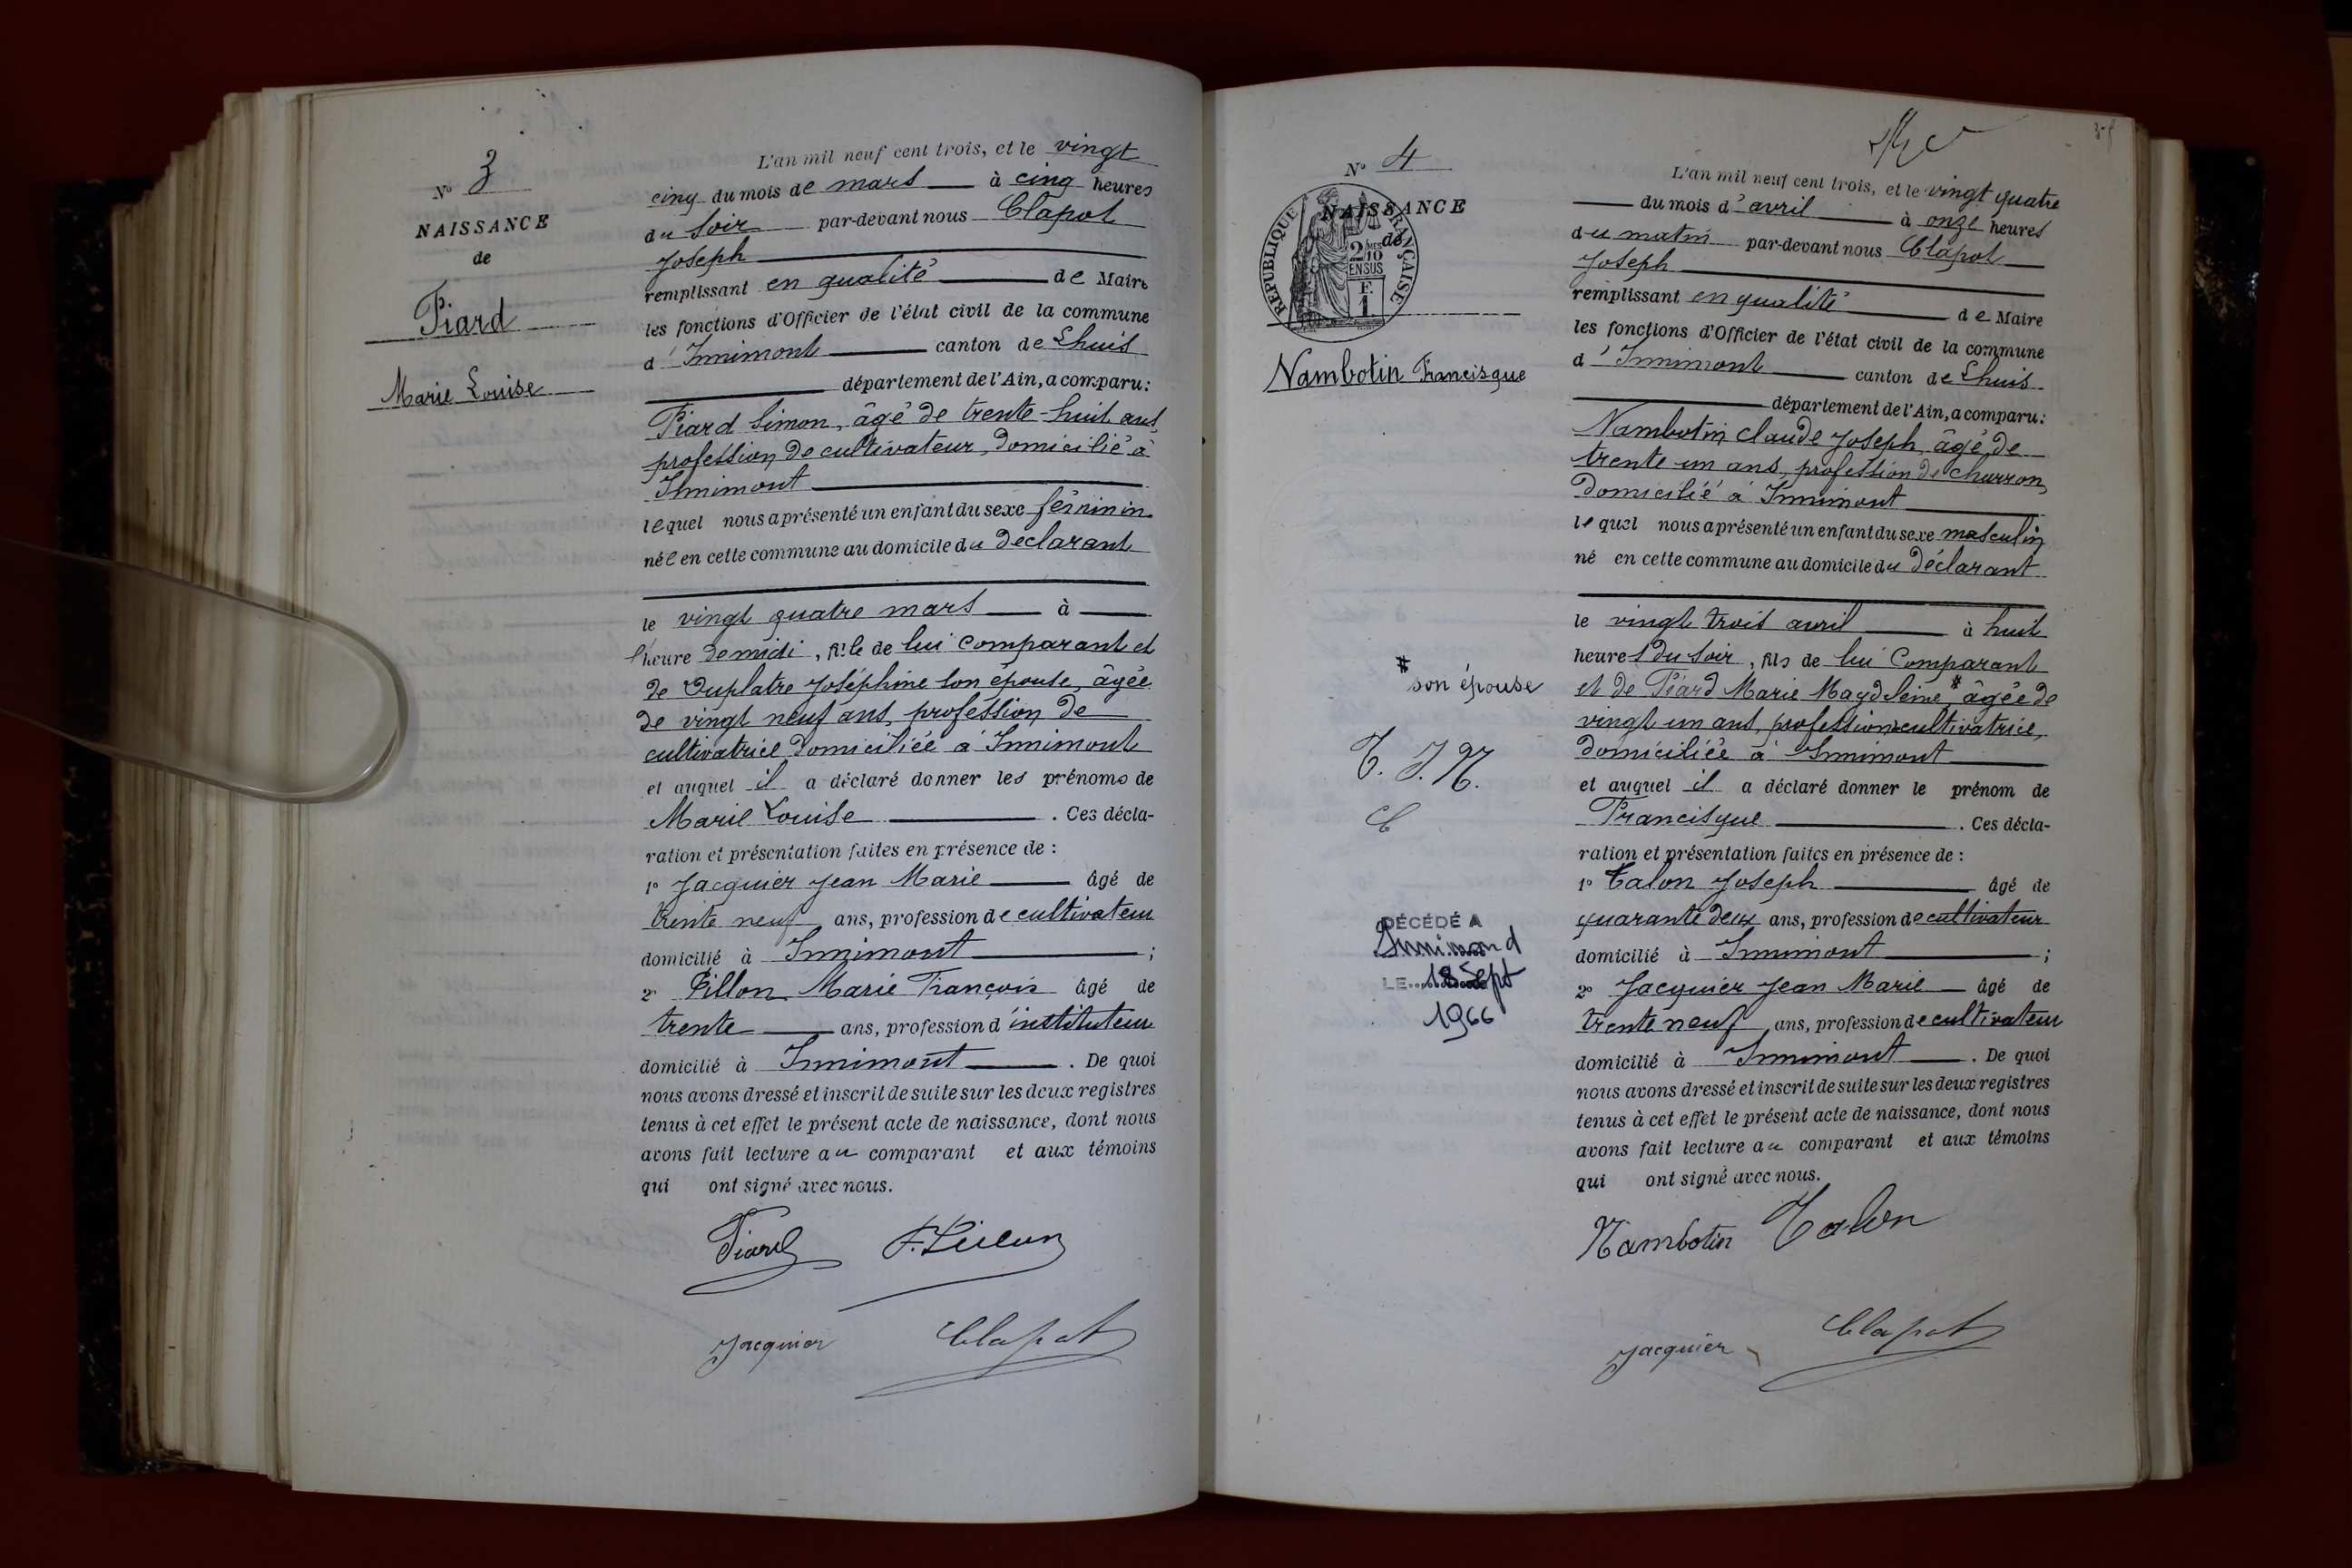 N° 3
NAISSANCE
de
Piard
Marie Louise
L'an mil neuf cent trois, et le vingt
cinq du mois de mars à cinq heures
du soir par-devant nous Clapot
Joseph
remplissant en qualité de Maire
les fonctions d'Officier de l'état civil de la commune
d'Innimont canton de Lhuis
département de l'Ain, a comparu:
Piard Simon, âgé de trente-huit ans,
profession de cultivateur, domicilié à
Innimont
lequel nous a présenté un enfant du sexe féminin
née en cette commune au domicile du déclarant
le vingt quatre mars à
l'heure de midi, fille de lui comparant et
de Duplatre Joséphine son épouse, âgée
de vingt neuf ans, profession de
cultivatrice domiciliée à Innimont
et auquel il a déclaré donner les prénoms de
Marie Louise . Ces décla-
ration et présentation faites en présence de :
1° Jacquier Jean Marie âgé de
trente neuf ans, profession de cultivateur
domicilié à Innimont ;
2° Pillon Marie François âgé de
trente ans, profession d'instituteur
domicilié à Innimont . De quoi
nous avons dressé et inscrit de suite sur les deux registres
tenus à cet effet le présent acte de naissance, dont nous
avons fait lecture au comparant et aux témoins
qui ont signé avec nous.
Piard F. Pillon
Jacquier Clapot
N° 4
NAISSANCE
de
RÉPUBLIQUE FRANÇAISE
2/10 MES
EN SUS
F.
1
Nambotin Francisque
# son épouse
T. J. N.
C
DÉCÉDÉ A
Innimond
LE 18 Sept
1966
L'an mil neuf cent trois, et le vingt quatre
du mois d'avril à onze heures
du matin par-devant nous Clapot
Joseph
remplissant en qualité de Maire
les fonctions d'Officier de l'état civil de la commune
d'Innimont canton de Lhuis
département de l'Ain, a comparu:
Nambotin Claude Joseph, âgé de
trente un ans, profession de charron,
domicilié à Innimont
lequel nous a présenté un enfant du sexe masculin
né en cette commune au domicile du déclarant
le vingt trois avril à huit
heures du soir, fils de lui Comparant
et de Piard Marie Magdeleine # âgée de
vingt un ans, profession cultivatrice,
domiciliée à Innimont
et auquel il a déclaré donner le prénom de
Francisque . Ces décla-
ration et présentation faites en présence de :
1° Talon Joseph âgé de
quarante deux ans, profession de cultivateur
domicilié à Innimont ;
2° Jacquier Jean Marie âgé de
trente neuf ans, profession de cultivateur
domicilié à Innimont . De quoi
nous avons dressé et inscrit de suite sur les deux registres
tenus à cet effet le présent acte de naissance, dont nous
avons fait lecture au comparant et aux témoins
qui ont signé avec nous.
Nambotin Talon
Jacquier Clapot